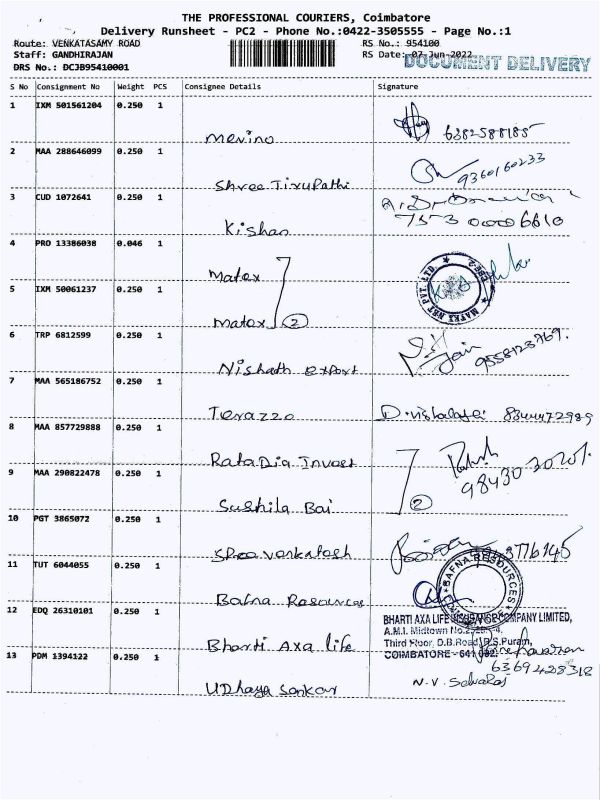 THE PROFESSIONAL COURIERS, Coimbatore
Delivery Runsheet - PC2 - Phone No.:0422-3505555 - Page No.:1
Route: VENKATASAMY ROAD RS No.: 954100
Staff: GANDHIRAJAN RS Date: 07-Jun-2022
DOCUMENT DELIVERY
DRS No.: DCJB95410001
S No Consignment No Weight PCS Consignee Details Signature
1 IXM 501561204 0.250 1
Merino 6382588185
2 MAA 288646099 0.250 1
Shree Tirupathi 9360160233
3 CUD 1072641 0.250 1
Kishan 7573 0000 6610
4 PRO 13386038 0.046 1
Matex
5 IXM 50061237 0.250 1
Matex 2
6 TRP 6812599 0.250 1
Nishath Export Jain 9558123769.
7 MAA 565186752 0.250 1
Terazzo 8344472989
8 MAA 857729888 0.250 1
RataDia Invest
9 MAA 290822478 0.250 1
Sushila Bai 2 98430
10 PGT 3865072 0.250 1
Sree Venkatesh
11 TUT 6044055 0.250 1
Bafna Resources
BAFNA RESOURCES
12 EDQ 26310101 0.250 1
Bharti Axa life
BHARTI AXA LIFE INSURANCE COMPANY LIMITED,
A.M.I. Midtown
Third Floor, D.B.Road, R.S.Puram,
COIMBATORE - 641 002.
13 PDM 1394122 0.250 1
6369428318
Udhaya Sankar N.V. Selvaraj